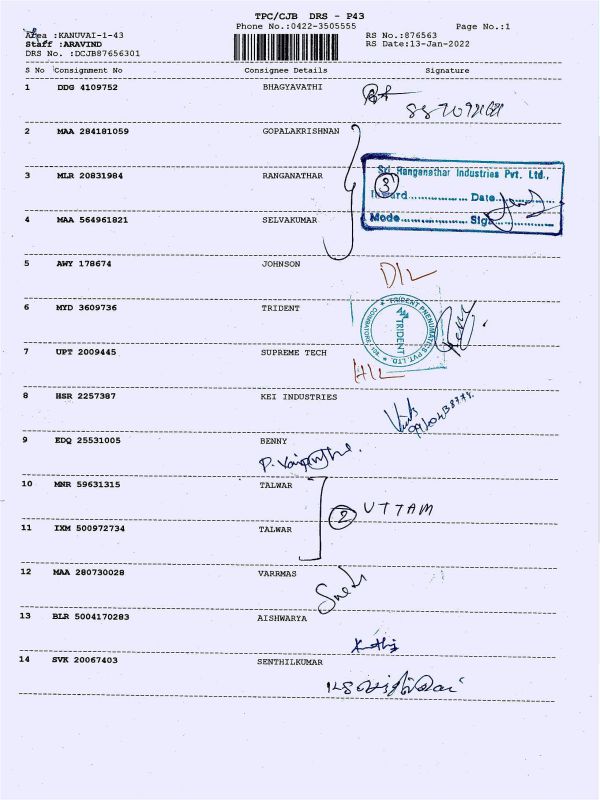 TPC/CJB DRS - P43
Phone No.:0422-3505555 Page No.:1
Area :KANUVAI-1-43 RS No.:876563
Staff :ARAVIND RS Date:13-Jan-2022
DRS No. :DCJB87656301
S No Consignment No Consignee Details Signature
1 DDG 4109752 BHAGYAVATHI
2 MAA 284181059 GOPALAKRISHNAN
Sri Ranganathar Industries Pvt. Ltd.,
3 MLR 20831984 RANGANATHAR 3
Inward Date
4 MAA 564961821 SELVAKUMAR Mode Sig
5 AWY 178674 JOHNSON
D/L
6 MYD 3609736 TRIDENT
TRIDENT PNEUMATICS PVT. LTD. COIMBATORE
TRIDENT
7 UPT 2009445 SUPREME TECH
H/L
8 HSR 2257387 KEI INDUSTRIES
9 EDQ 25531005 BENNY
10 MNR 59631315 TALWAR
2 UTTAM
11 IXM 500972734 TALWAR
12 MAA 280730028 VARRMAS
13 BLR 5004170283 AISHWARYA
14 SVK 20067403 SENTHILKUMAR